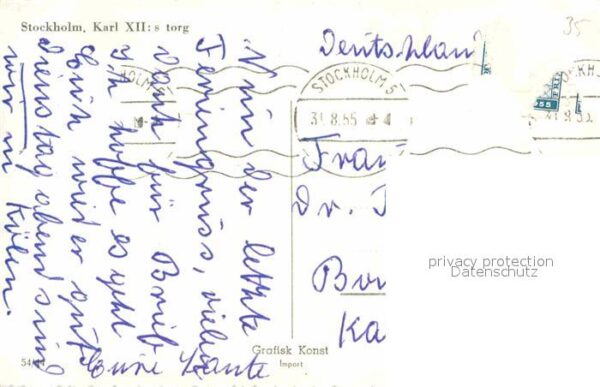 Stockholm, Karl XII:s torg
Nun der letzte
Feriengruss, vielen
Dank für Brief.
Ich hoffe es geht
Euch wieder gut.
Dienstag abend sind
wir in Köln.
Eure Tante
Deutschland
STOCKHOLM 5
31.8.55
STOCKHOLM
55
Frau
Dr.
35
Grafisk Konst
Import
privacy protection
Datenschutz